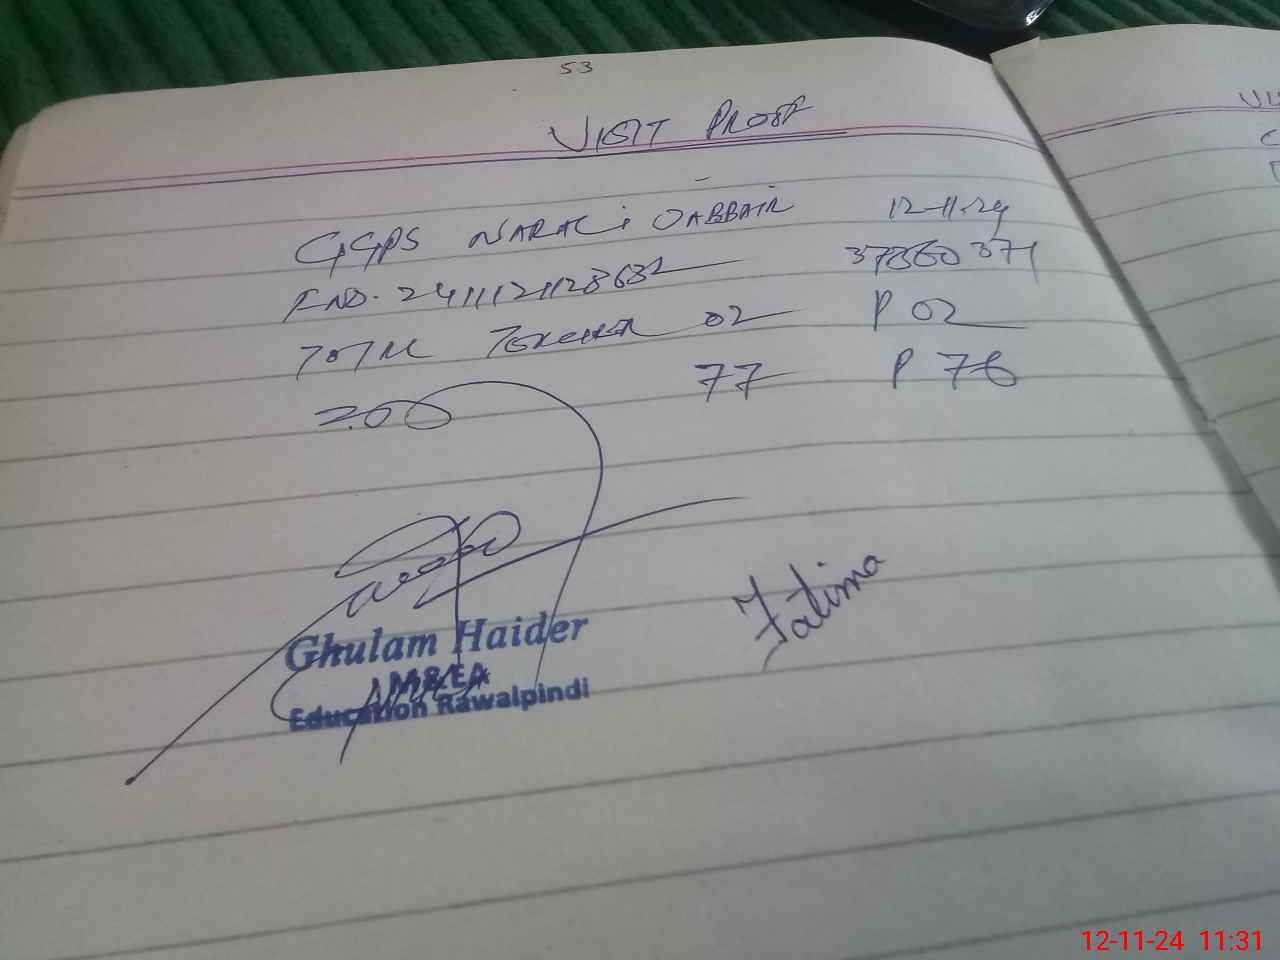 53
VISIT PROOF
GGPS NARALI JABBAIR 12-11-24
F-NO. 2411121128632 37360371
TOTAL TEACHER 02 P 02
77 P 76
Ghulam Haider
M&EA
Education Rawalpindi
Fatima
VIS
12-11-24 11:31